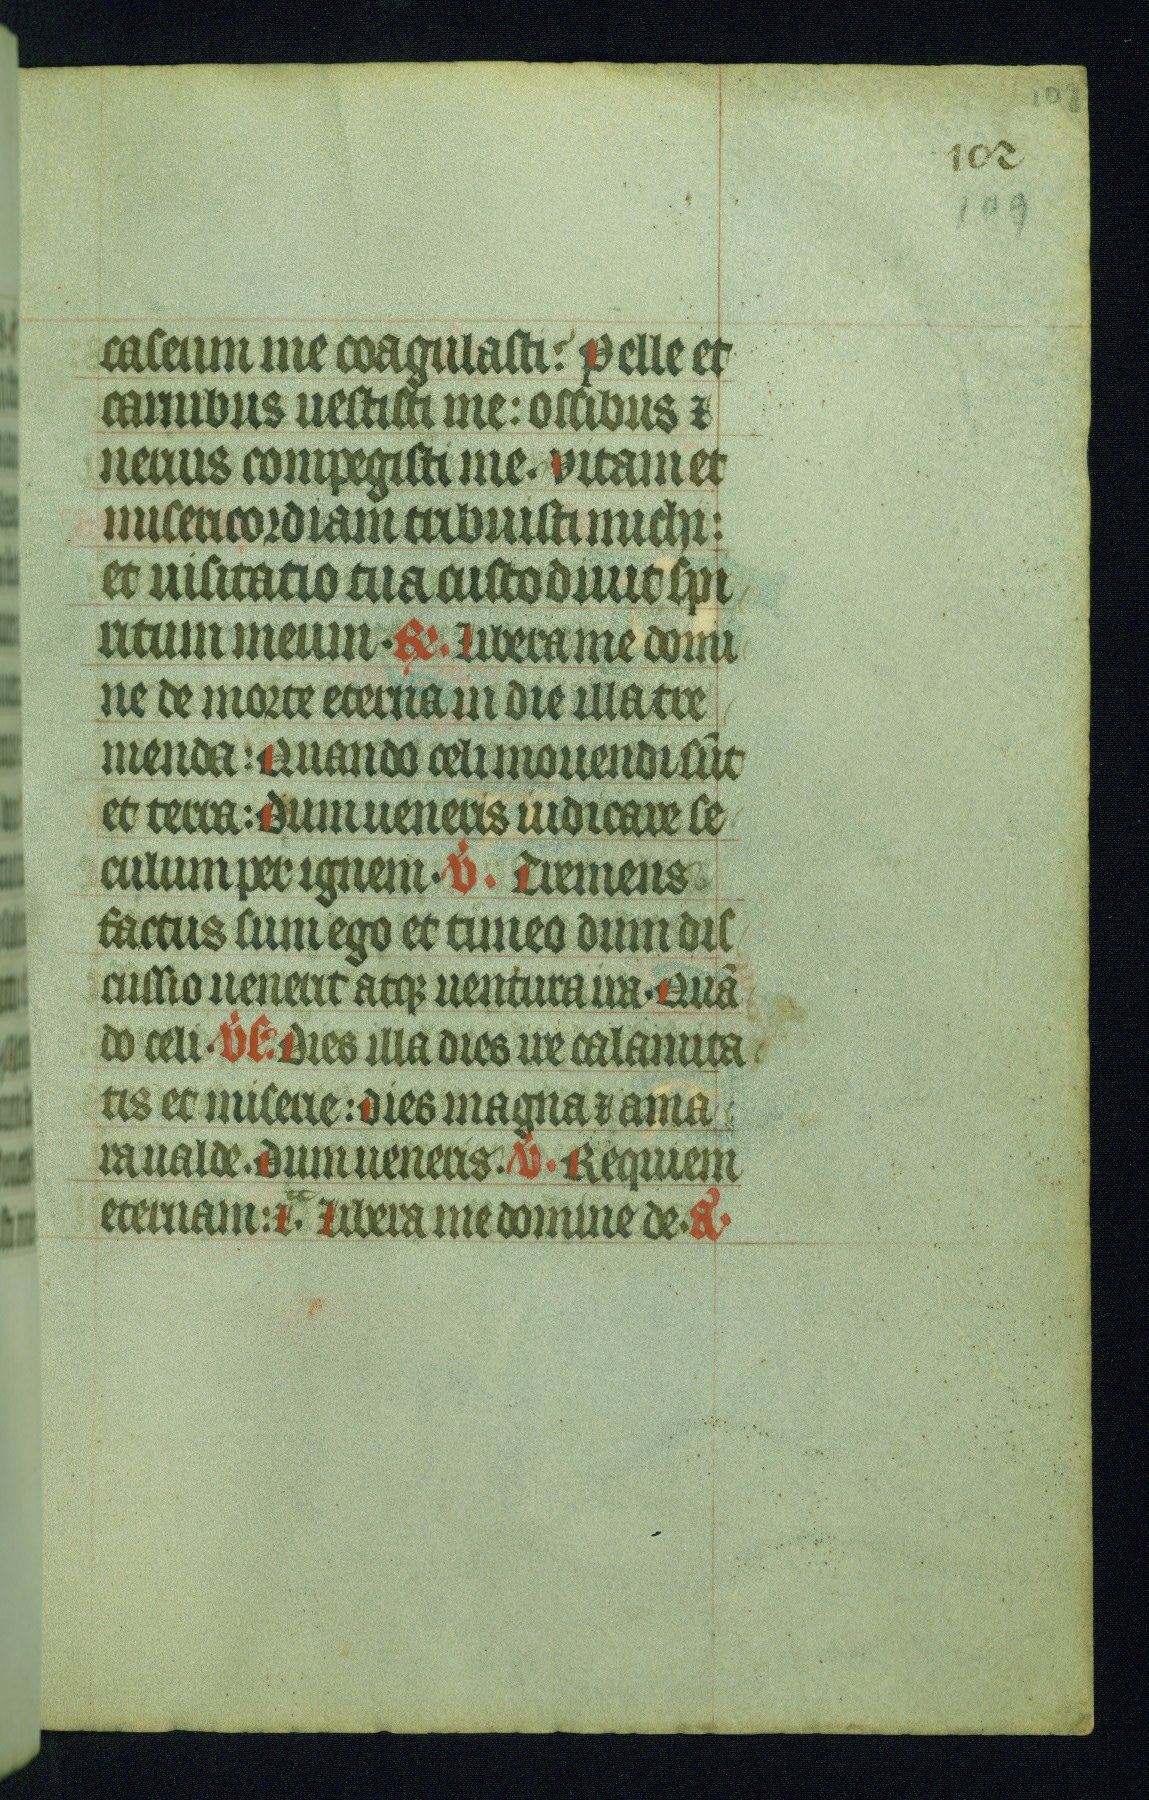 108
102
109
caseum me coagulasti? Pelle et
carnibus uestisti me: ossibus ⁊
neruis compegisti me. vitam et
misericordiam tribuisti michi:
et uisitatio tua custodiuit spi
ritum meum. ℟. Libera me domi
ne de morte eterna in die illa tre
menda: Quando celi mouendi sūt
et terra: Dum ueneris iudicare se
culum per ignem. ℣. Tremens
factus sum ego et timeo dum dis
cussio uenerit atqꝫ uentura ira. Quā
do celi. ℣s. Dies illa dies ire calamita
tis et miserie: dies magna ⁊ ama
ra ualde. Dum ueneris. ℣. Requiem
eternam: ⁊c. Libera me domine de. A.